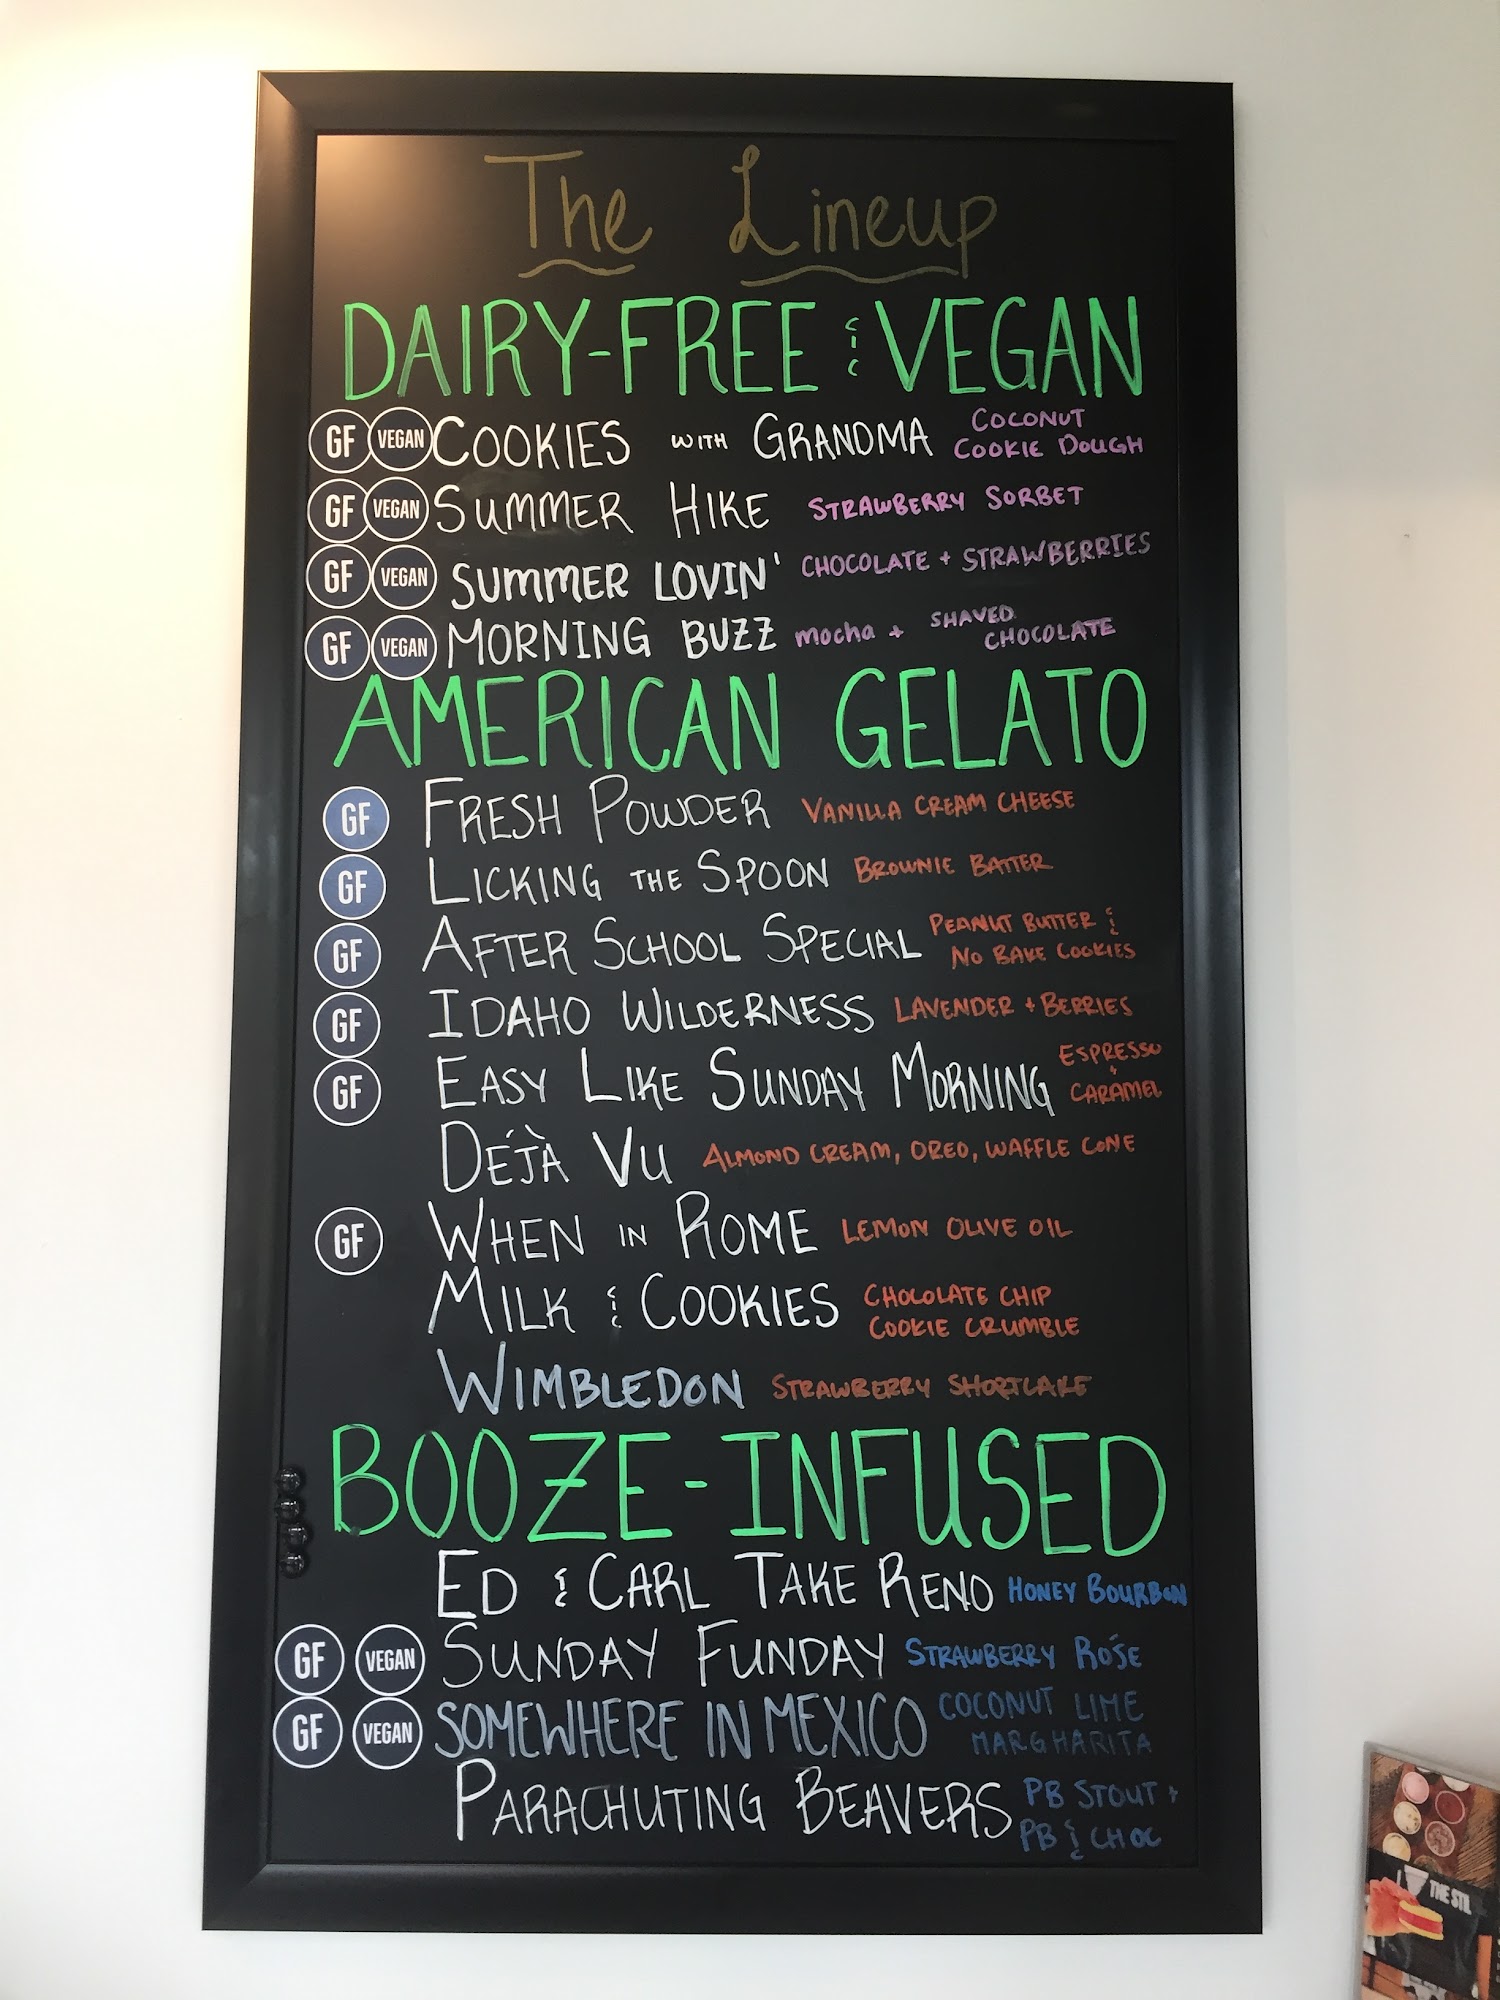 The Lineup
DAIRY-FREE & VEGAN
GF VEGAN COOKIES WITH GRANDMA COCONUT COOKIE DOUGH
GF VEGAN SUMMER HIKE STRAWBERRY SORBET
GF VEGAN SUMMER LOVIN' CHOCOLATE + STRAWBERRIES
GF VEGAN MORNING BUZZ mocha + SHAVED CHOCOLATE
AMERICAN GELATO
GF FRESH POWDER VANILLA CREAM CHEESE
GF LICKING THE SPOON BROWNIE BATTER
GF AFTER SCHOOL SPECIAL PEANUT BUTTER & NO BAKE COOKIES
GF IDAHO WILDERNESS LAVENDER + BERRIES
GF EASY LIKE SUNDAY MORNING ESPRESSO + CARAMEL
DÉJÀ VU ALMOND CREAM, OREO, WAFFLE CONE
GF WHEN IN ROME LEMON OLIVE OIL
MILK & COOKIES CHOCOLATE CHIP COOKIE CRUMBLE
WIMBLEDON STRAWBERRY SHORTCAKE
BOOZE-INFUSED
ED & CARL TAKE RENO HONEY BOURBON
GF VEGAN SUNDAY FUNDAY STRAWBERRY ROSÉ
GF VEGAN SOMEWHERE IN MEXICO COCONUT LIME MARGHARITA
PARACHUTING BEAVERS PB STOUT + PB & CHOC
THE